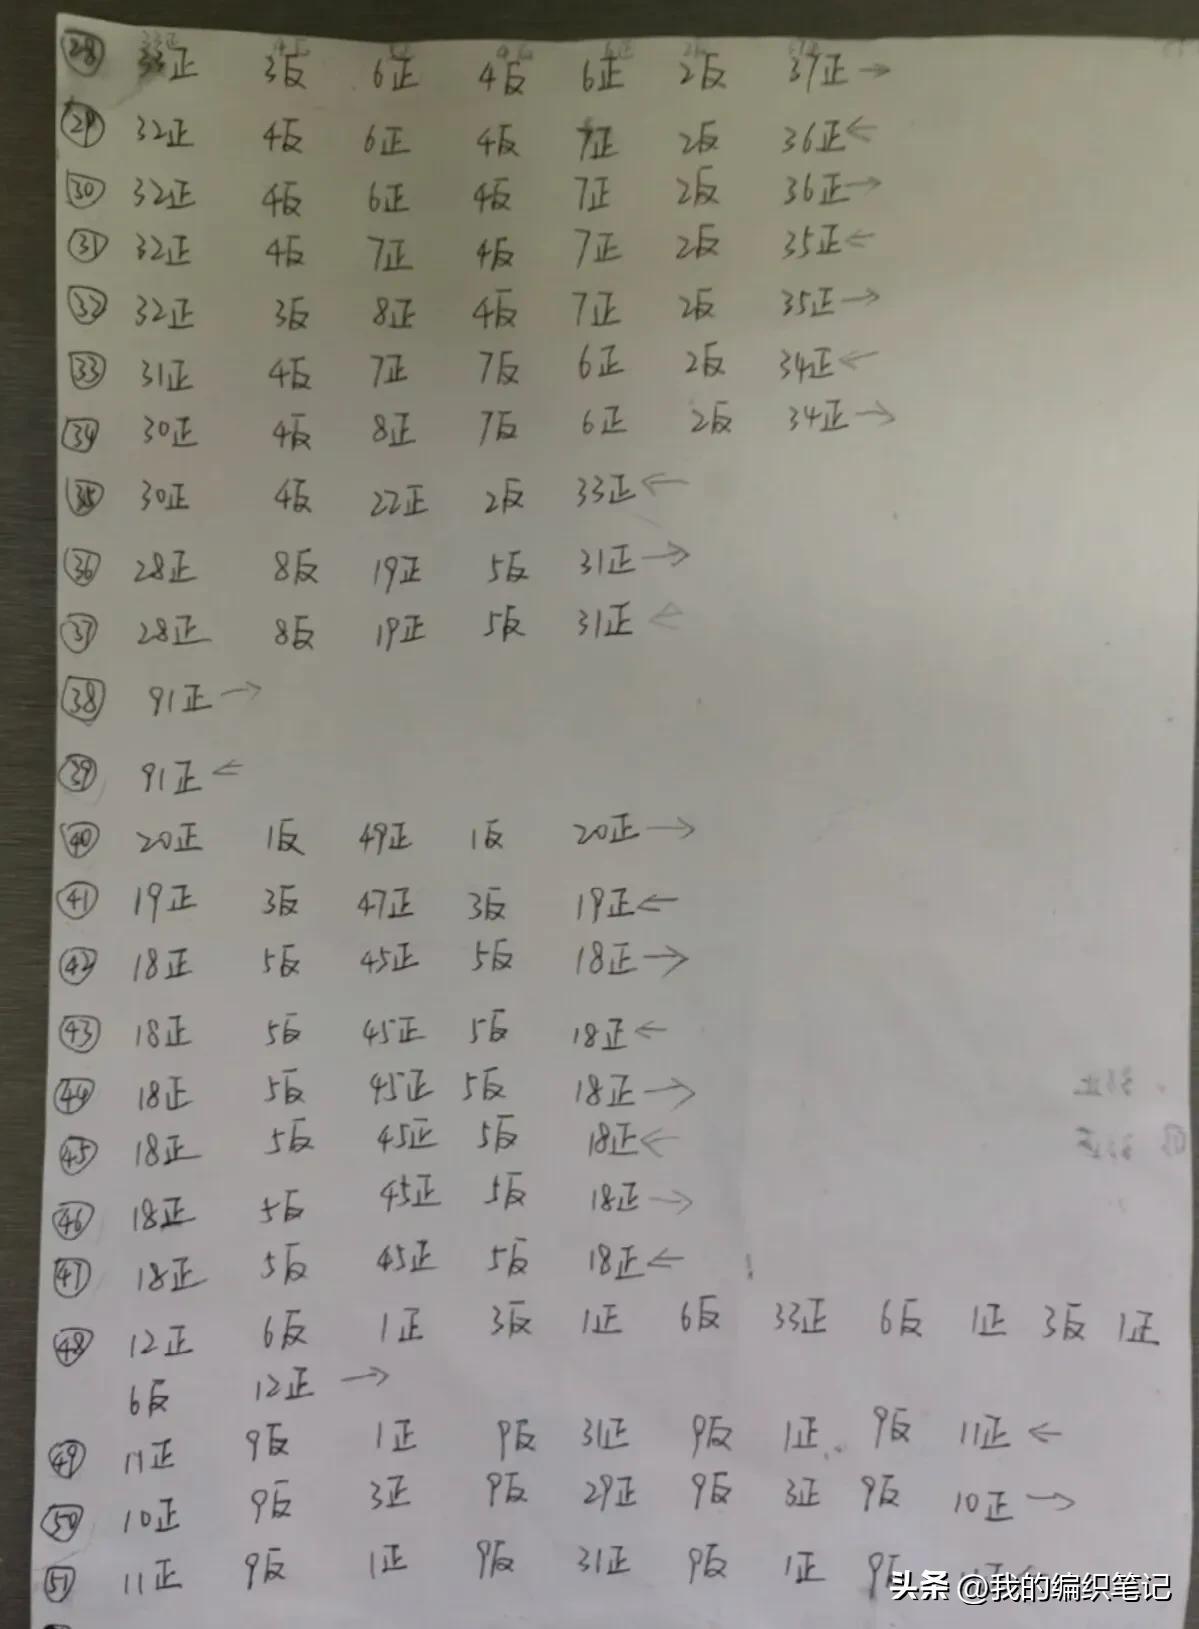 ㉘ 33正 3反 6正 4反 6正 2反 37正→
㉙ 32正 4反 6正 4反 7正 2反 36正←
㉚ 32正 4反 6正 4反 7正 2反 36正→
㉛ 32正 4反 7正 4反 7正 2反 35正←
㉜ 32正 3反 8正 4反 7正 2反 35正→
㉝ 31正 4反 7正 7反 6正 2反 34正←
㉞ 30正 4反 8正 7反 6正 2反 34正→
㉟ 30正 4反 22正 2反 33正←
㊱ 28正 8反 19正 5反 31正→
㊲ 28正 8反 19正 5反 31正←
㊳ 91正→
㊴ 91正←
㊵ 20正 1反 49正 1反 20正→
㊶ 19正 3反 47正 3反 19正←
㊷ 18正 5反 45正 5反 18正→
㊸ 18正 5反 45正 5反 18正←
㊹ 18正 5反 45正 5反 18正→
㊺ 18正 5反 45正 5反 18正←
㊻ 18正 5反 45正 5反 18正→
㊼ 18正 5反 45正 5反 18正←
㊽ 12正 6反 1正 3反 1正 6反 33正 6反 1正 3反 1正
6反 12正→
㊾ 11正 9反 1正 9反 31正 9反 1正 9反 11正←
㊿ 10正 9反 3正 9反 29正 9反 3正 9反 10正→
(51) 11正 9反 1正 9反 31正 9反 1正 9反
头条 @我的编织笔记